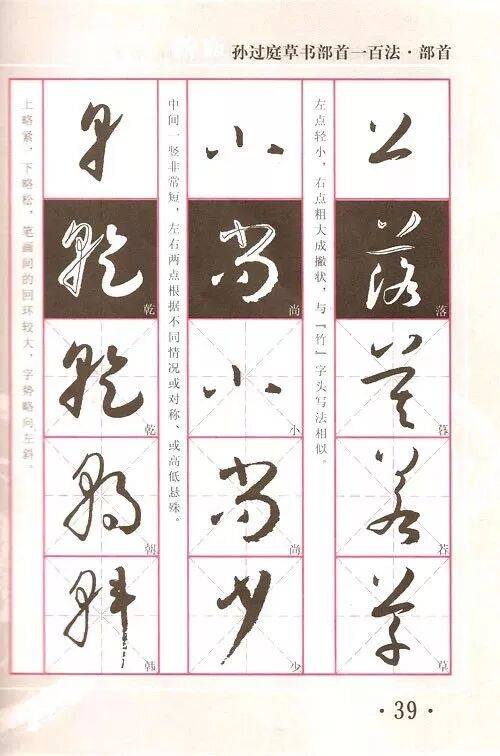 孙过庭草书部首一百法·部首
落
暮
若
草
左点轻小，右点粗大成撇状，与“竹”字头写法相似。
小
尚
小
尚
少
中间一竖非常短，左右两点根据不同情况或对称、或高低悬殊。
乾
乾
朝
韩
上略紧，下略松，笔画间的回环较大，字势略向左斜。
·39·